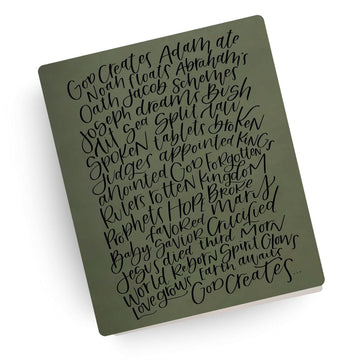 God Creates Adam ate
Noah floats Abraham's
Oath Jacob Schemes
Joseph dreams Bush
talks Sea Split
Spoken tablets broken
Judges appointed Kings
anointed God Forgotten
Rulers rotten Kingdom
Broke
Prophets Hope Mary
favored
Baby Savior Crucified
Jesus died third Morn
World Reborn Spirit Glows
Love grows Earth awaits
God Creates...